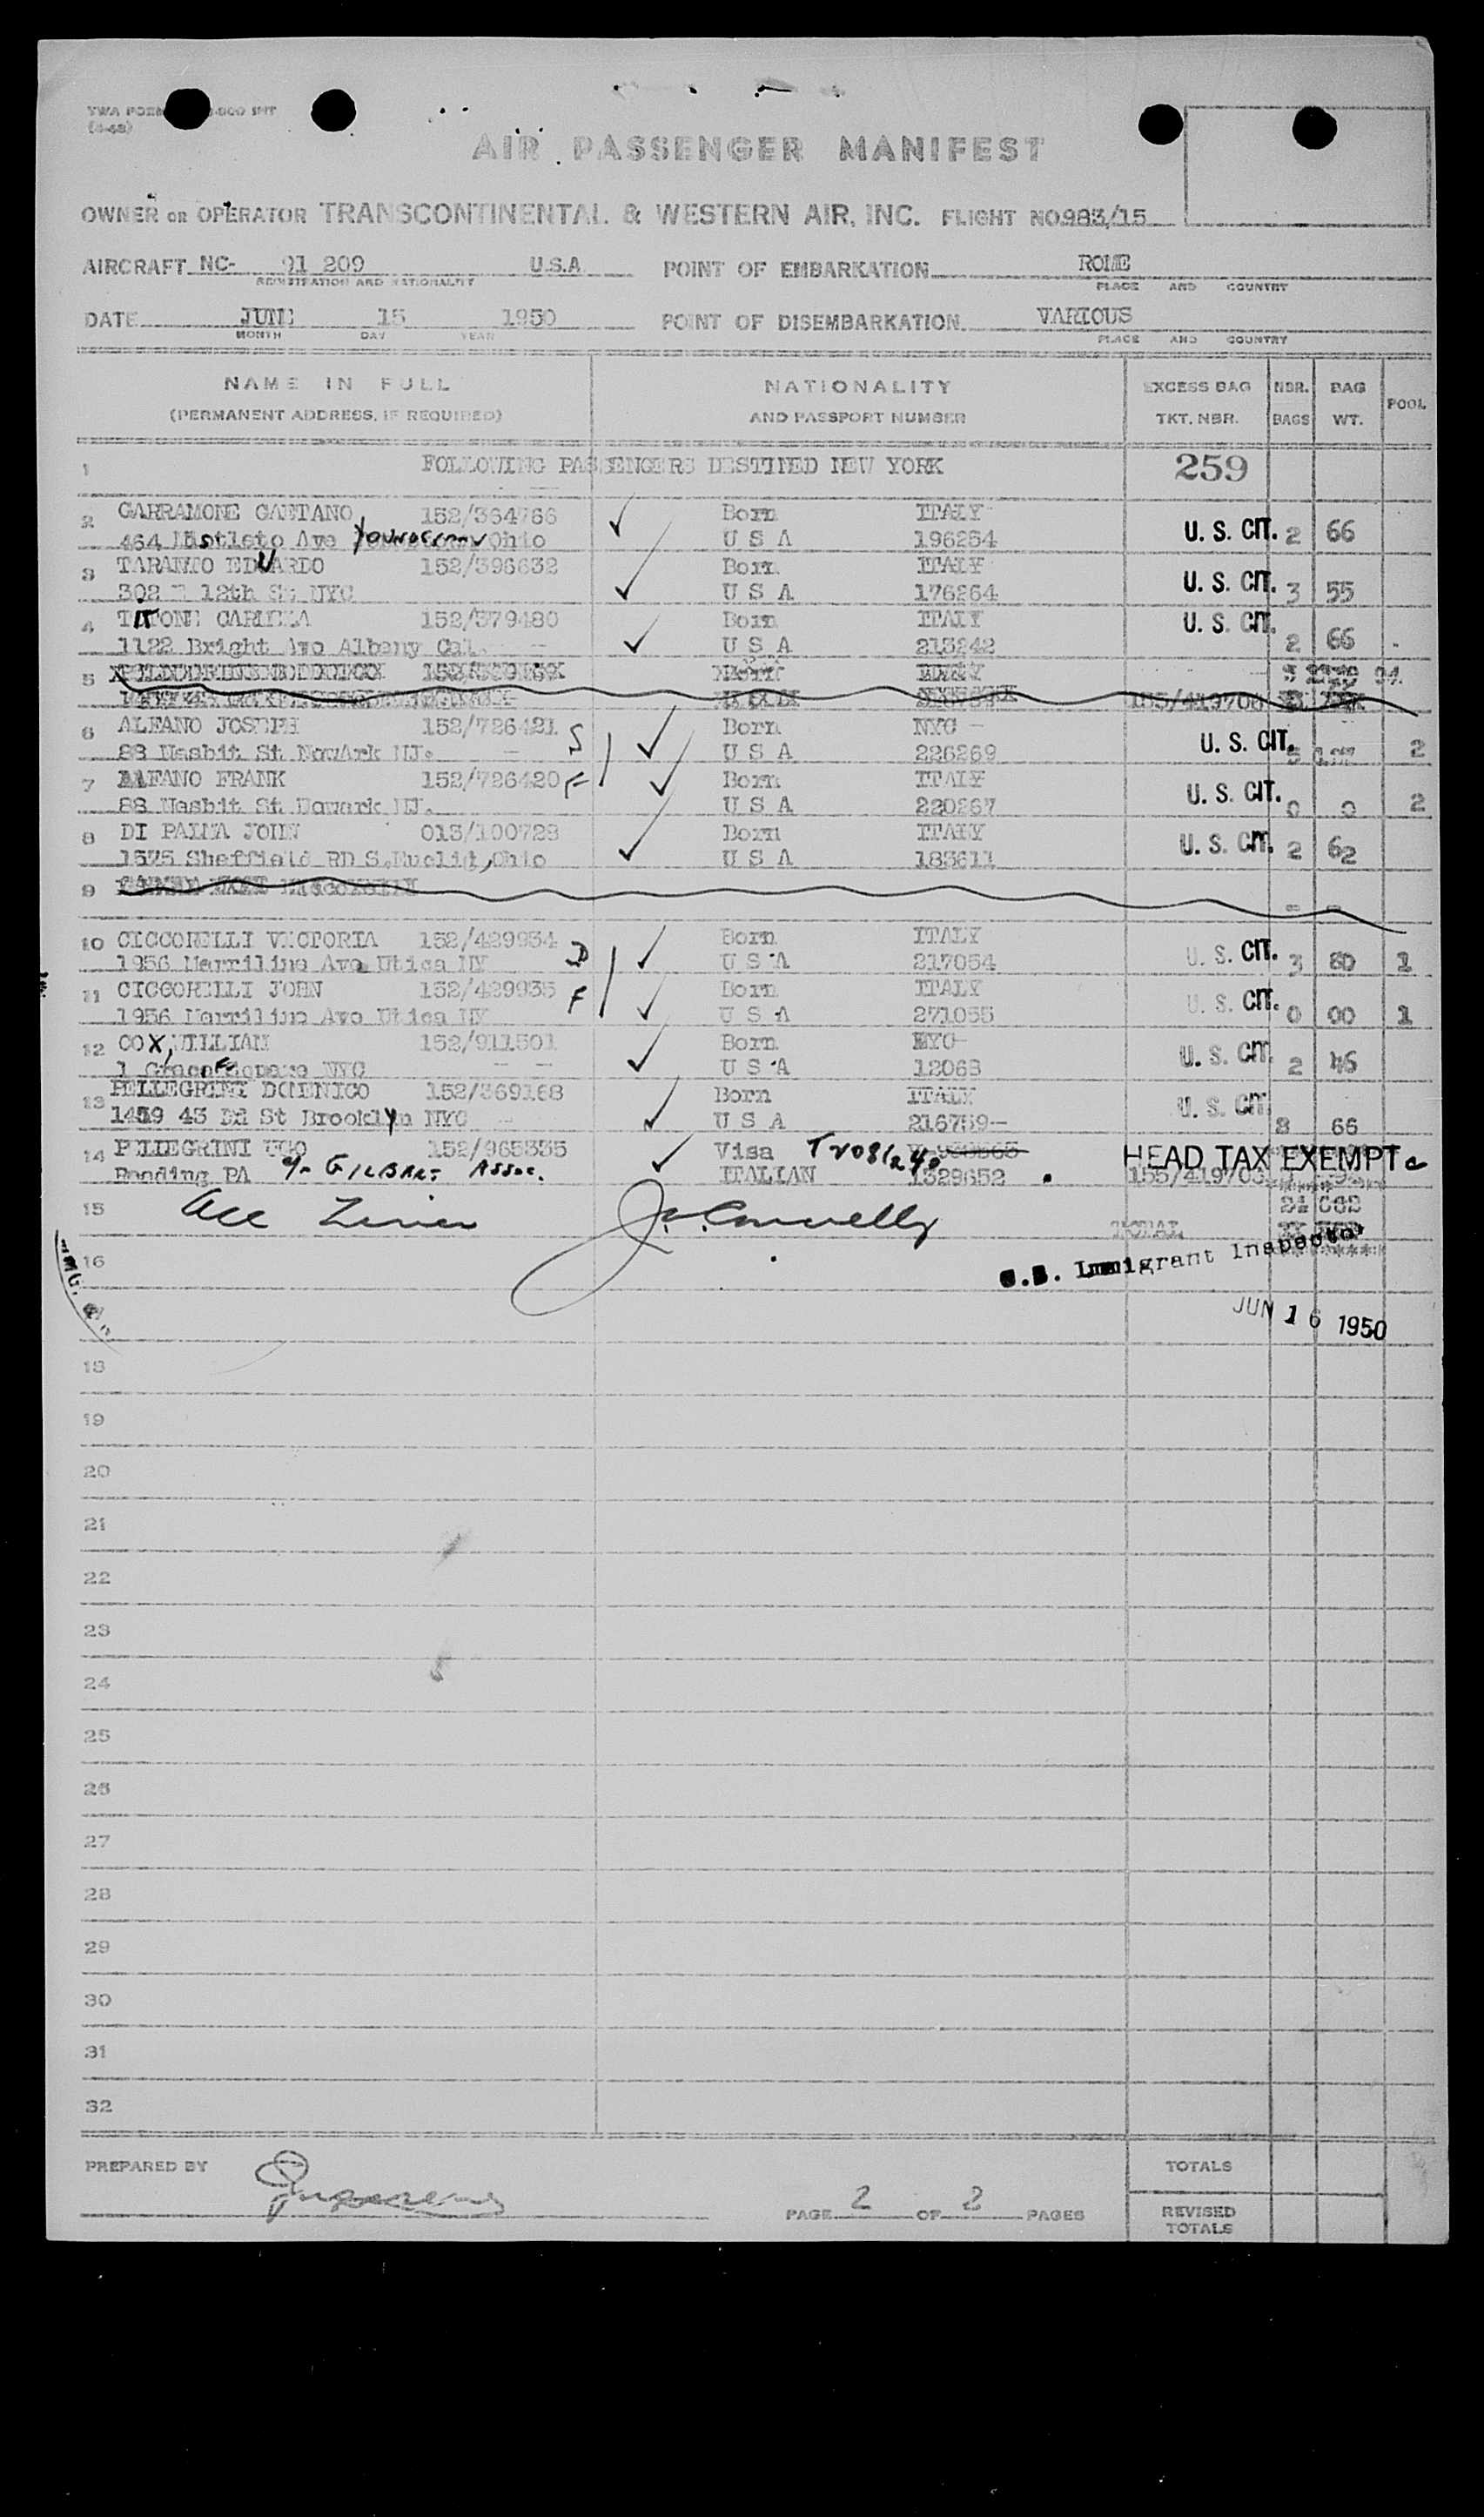 TWA FORM
AIR PASSENGER MANIFEST
OWNER OR OPERATOR TRANSCONTINENTAL & WESTERN AIR, INC. FLIGHT NO. 983/15
AIRCRAFT NC- 91 209 U.S.A POINT OF EMBARKATION ROME
REGISTRATION AND NATIONALITY PLACE AND COUNTRY
DATE JUNE 15 1950 POINT OF DISEMBARKATION VARIOUS
MONTH DAY YEAR PLACE AND COUNTRY
NAME IN FULL NATIONALITY EXCESS BAG NBR. BAG POOL
(PERMANENT ADDRESS, IF REQUIRED) AND PASSPORT NUMBER TKT. NBR. BAGS WT.
1 FOLLOWING PASSENGERS DESTINED NEW YORK 259
2 GARRAMONE GAETANO 152/364766 Born ITALY
464 Mistleto Ave Youngstown Ohio U S A 196254 U. S. CIT. 2 66
3 TARANTO EDUARDO 152/396632 Born ITALY
302 E 12th St NYC U S A 176264 U. S. CIT. 3 55
4 TITONE CARMELA 152/379480 Born ITALY U. S. CIT.
1122 Bright Ave Albany Cal. U S A 213242 2 66
5
155/419706
6 ALFANO JOSEPH 152/726421 S Born NYC
88 Nesbit St Newark NJ. U S A 226269 U. S. CIT. 5 2
7 ALFANO FRANK 152/726420 F Born ITALY
88 Nesbit St Newark NJ. U S A 220267 U. S. CIT. 0 0 2
8 DI PALMA JOHN 015/100728 Born ITALY
1575 Sheffield RD S.Euclid, Ohio U S A 183611 U. S. CIT. 2 62
9
10 CICCORELLI VICTORIA 152/429934 D Born ITALY
1956 Merriline Ave Utica NY U S A 217054 U. S. CIT. 3 80 1
11 CICCORELLI JOHN 152/429935 F Born ITALY
1956 Merriline Ave Utica NY U S A 271055 U. S. CIT. 0 00 1
12 COX, WILLIAM 152/911501 Born NYC
1 Grace Square NYC U S A 12068 U. S. CIT. 2 46
13 PELLEGRINI DOMENICO 152/369168 Born ITALY
1459 43 Rd St Brooklyn NYC U S A 216759 U. S. CIT. 3 66
14 PELLEGRINI UGO 152/965335 Visa T208/240 HEAD TAX EXEMPT
Reading PA c/o GILBERT ASSOC. ITALIAN 1329652 155/419703
15 TOTAL
16 U.S. Immigrant Inspector
JUN 16 1950
18
19
20
21
22
23
24
25
26
27
28
29
30
31
32
PREPARED BY TOTALS
PAGE 2 OF 2 PAGES REVISED
TOTALS